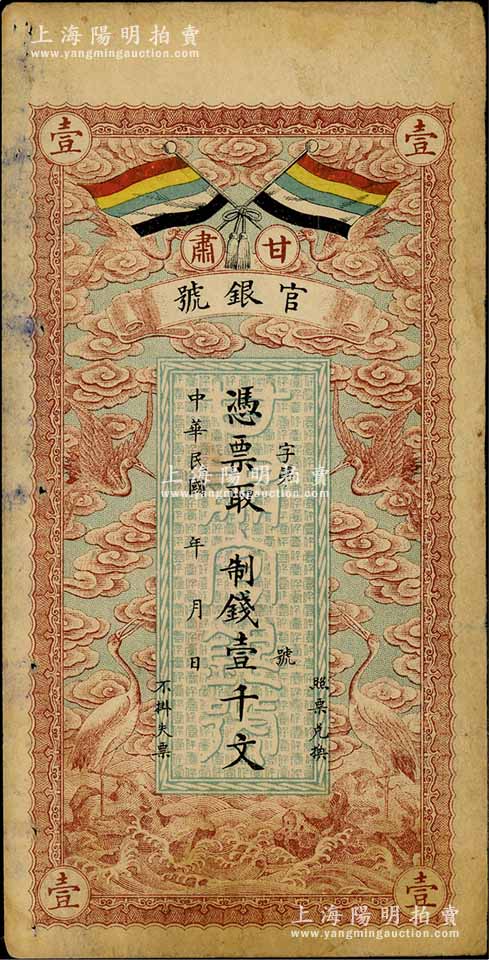 上海陽明拍賣
www.yangmingauction.com
壹
壹
甘肅
官銀號
字第 號
憑票取制錢壹千文
中華民國 年 月 日
照票兌換
不掛失票
上海陽明拍賣
www.yangmingauction.com
甘肅官銀號
壹
壹
上海陽明拍賣
www.yangmingauction.com